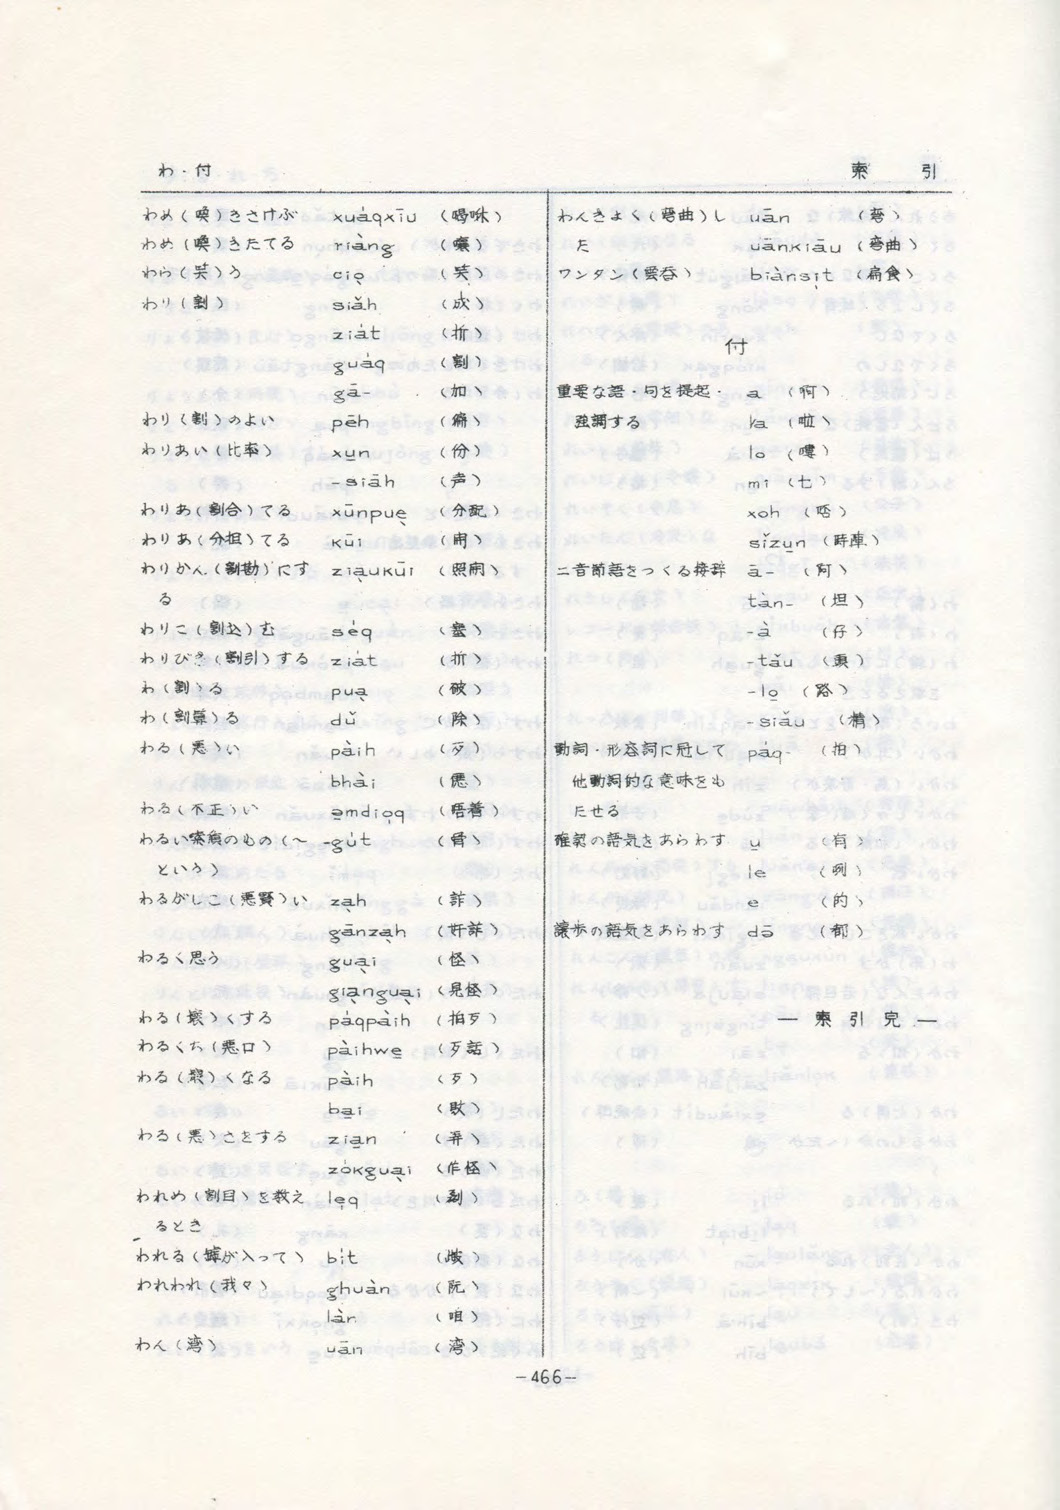 わ・付
索 引
わめ(喚)きさけぶ xuáqxīu (喝咻)
わめ(喚)きたてる riàng (嚷)
わら(笑)う cio̱ (笑)
わり(割) siǎh
ziát (折)
guáq (割)
gā- (加)
わり(割)のよい pēh
わりあい(比率) xu̱n (份)
-siāh (声)
わりあ(割合)てる xūnpue̱ (分配)
わりあ(分担)てる kūi (開)
わりかん(割勘)にす zia̱ukūi (照開)
る
わりこ(割込)む séq
わりびき(割引)する ziát (折)
わ(割)る pua̱ (破)
わ(割算)る dǔ (除)
わる(悪)い pàih (歹)
bhài
わる(不正)い a̱mdio̱q (唔着)
わるい案病のもの(〜 -gút (骨)
という)
わるがしこ(悪賢)い za̱h (詐)
gānza̱h (奸詐)
わるく思う gua̱i (怪)
gia̱ngua̱i (見怪)
わる(壊)くする páqpàih (拍歹)
わるくち(悪口) pàihwe̱ (歹話)
わる(腐)くなる pàih (歹)
ba̱i (敗)
わる(悪)さをする zia̱n (弄)
zókgua̱i (作怪)
われめ(割目)を数え le̱q
るとき
われる(罅が入って) bít
われわれ(我々) ghuàn (阮)
làn (咱)
わん(湾) uān (湾)
わんきょく(彎曲)し uān (彎)
た uānkiāu (彎曲)
ワンタン(雲呑) biànsi̱t (扁食)
付
重要な語・句を提起・ a (啊)
強調する la (啦)
lo (嘍)
mi (七)
xoh
sǐzu̱n (時陣)
二音節語をつくる接辞 ā- (阿)
tàn- (坦)
-à (仔)
-tǎu (頭)
-lo̱ (路)
-siǎu (精)
動詞・形容詞に冠して páq- (拍)
他動詞的な意味をも
たせる
確認の語気をあらわす u̱ (有)
le (咧)
e (的)
譲歩の語気をあらわす dō (都)
— 索 引 完 —
-466-